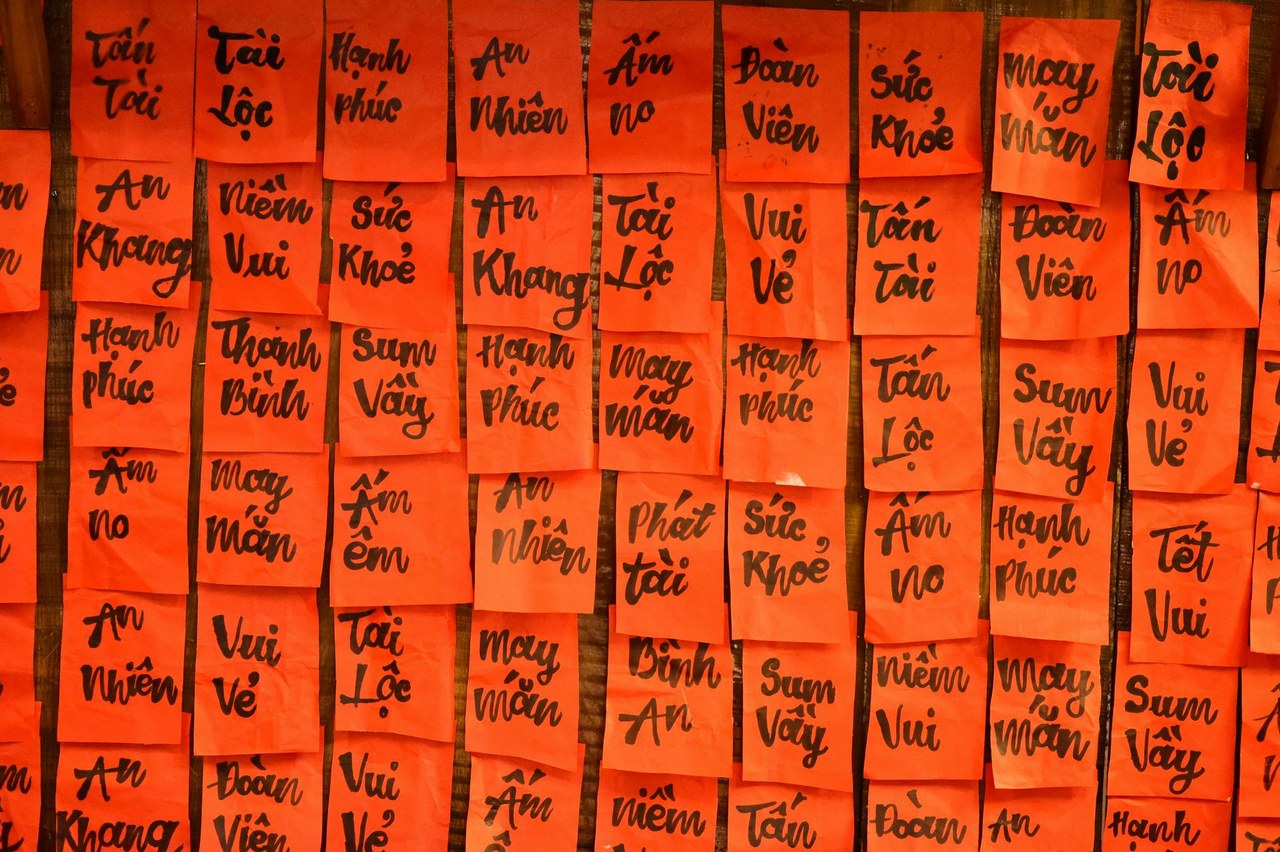 Tấn
Tài
Tài
Lộc
Hạnh
phúc
An
Nhiên
Ấm
no
Đoàn
Viên
Sức
Khoẻ
May
mắn
Tài
Lộc
An
Khang
Niềm
Vui
Sức
Khoẻ
An
Khang
Tài
Lộc
Vui
Vẻ
Tấn
Tài
Đoàn
Viên
Ấm
no
Hạnh
phúc
Thanh
Bình
Sum
Vầy
Hạnh
phúc
May
mắn
Hạnh
phúc
Tấn
Lộc
Sum
Vầy
Vui
Vẻ
Ấm
no
May
mắn
Ấm
êm
An
nhiên
Phát
tài
Sức
Khoẻ
Ấm
no
Hạnh
Phúc
Tết
Vui
An
nhiên
Vui
Vẻ
Tài
Lộc
May
mắn
Bình
An
Sum
Vầy
Niềm
Vui
May
mắn
Sum
Vầy
An
Khang
Đoàn
Viên
Vui
Vẻ
Ấm
niềm
Tấn
Đoàn
An
Hạnh